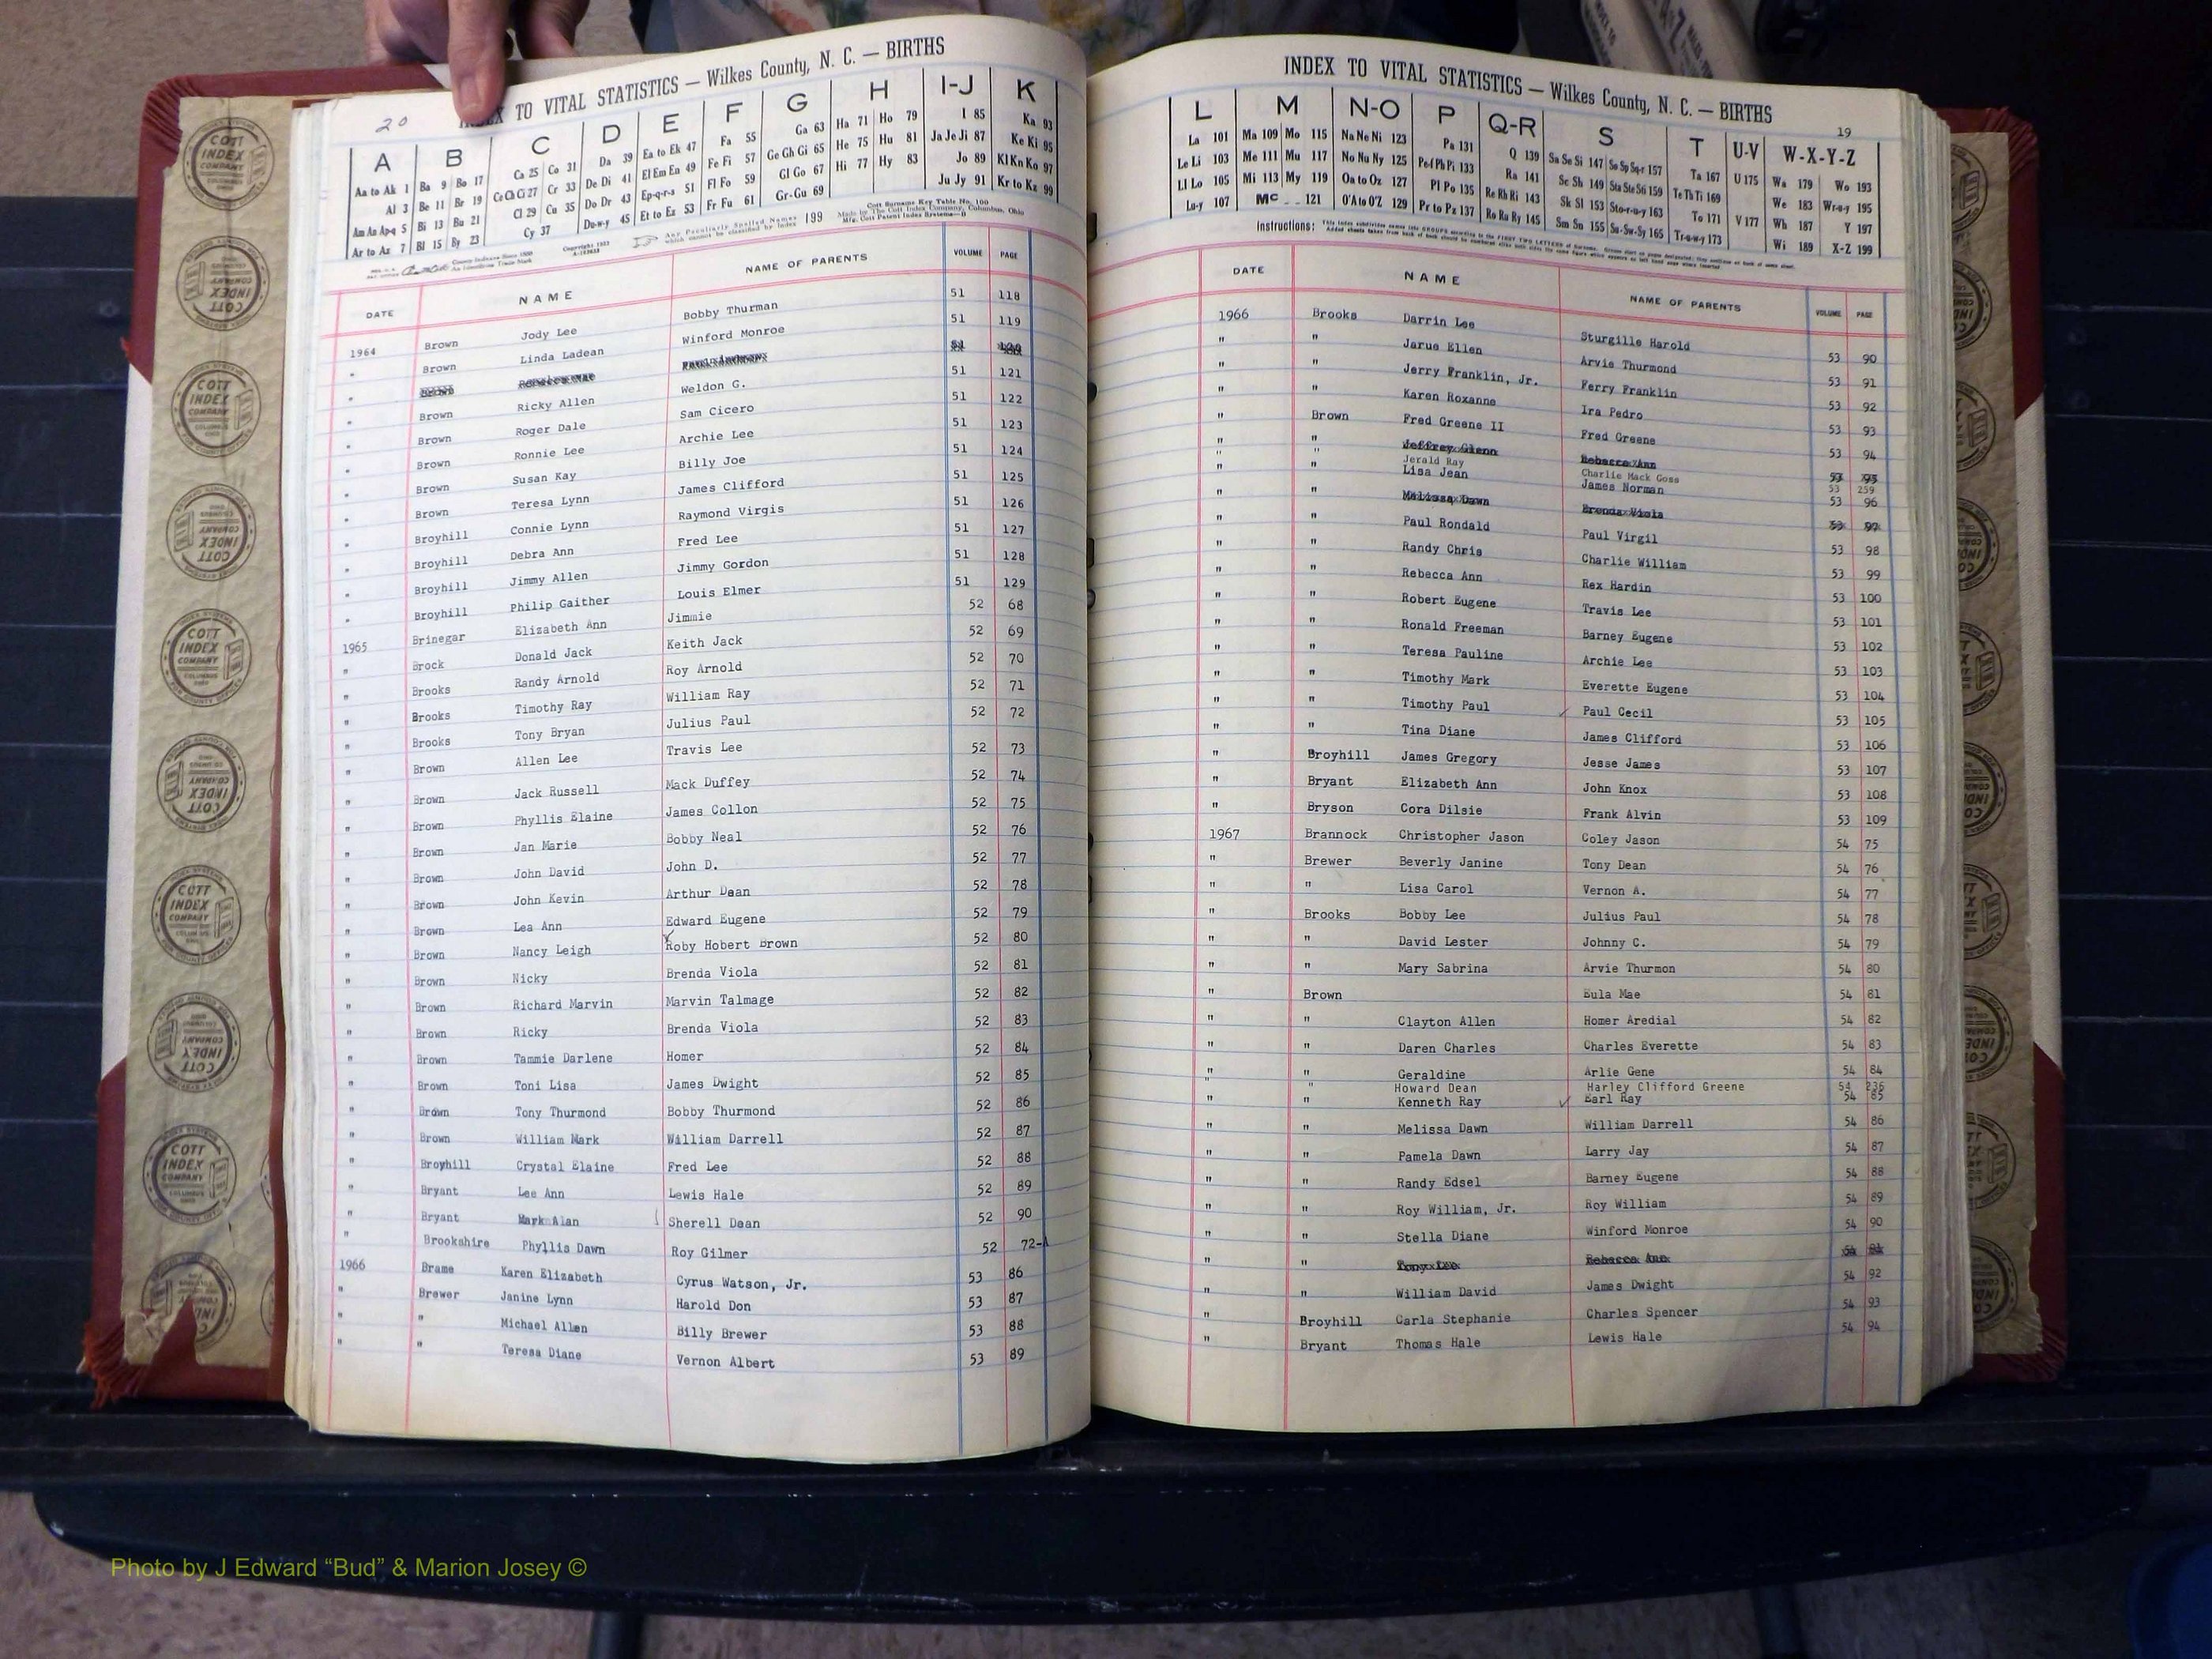 20
INDEX TO VITAL STATISTICS — Wilkes County, N. C. — BIRTHS
A B C D E F G H I-J K
Aa to Ak 1 Ba 9 Bo 17 Ca 25 Co 31 Da 39 Ea to Ek 47 Fa 55 Ga 63 Ha 71 Ho 79 I 85 Ka 93
Al 3 Be 11 Br 19 Ce Ch Ci 27 Cr 33 De Di 41 El Em En 49 Fe Fi 57 Ge Gh Gi 65 He 75 Hu 81 Ja Je Ji 87 Ke Ki 95
Am An Ap-q 5 Bi 13 Bu 21 Cl 29 Cu 35 Do Dr 43 Ep-q-r-s 51 Fl Fo 59 Gl Go 67 Hi 77 Hy 83 Jo 89 Kl Kn Ko 97
Ar to Az 7 Bl 15 By 23 Cy 37 Du-w-y 45 Et to Ez 53 Fr Fu 61 Gr-Gu 69 Ju Jy 91 Kr to Kz 99
Any Peculiarly Spelled Names which cannot be classified by Index 199
Cott Surname Key Table No. 100
Made by The Cott Index Company, Columbus, Ohio
DATE NAME NAME OF PARENTS VOLUME PAGE
1964 Brown Jody Lee Bobby Thurman 51 118
" Brown Linda Ladean Winford Monroe 51 119
" Brown 51
" Brown Ricky Allen Weldon G. 51 121
" Brown Roger Dale Sam Cicero 51 122
" Brown Ronnie Lee Archie Lee 51 123
" Brown Susan Kay Billy Joe 51 124
" Brown Teresa Lynn James Clifford 51 125
" Broyhill Connie Lynn Raymond Virgis 51 126
" Broyhill Debra Ann Fred Lee 51 127
" Broyhill Jimmy Allen Jimmy Gordon 51 128
" Broyhill Philip Gaither Louis Elmer 51 129
1965 Brinegar Elizabeth Ann Jimmie 52 68
" Brock Donald Jack Keith Jack 52 69
" Brooks Randy Arnold Roy Arnold 52 70
" Brooks Timothy Ray William Ray 52 71
" Brooks Tony Bryan Julius Paul 52 72
" Brown Allen Lee Travis Lee 52 73
" Brown Jack Russell Mack Duffey 52 74
" Brown Phyllis Elaine James Collon 52 75
" Brown Jan Marie Bobby Neal 52 76
" Brown John David John D. 52 77
" Brown John Kevin Arthur Dean 52 78
" Brown Lea Ann Edward Eugene 52 79
" Brown Nancy Leigh Roby Hobert Brown 52 80
" Brown Nicky Brenda Viola 52 81
" Brown Richard Marvin Marvin Talmage 52 82
" Brown Ricky Brenda Viola 52 83
" Brown Tammie Darlene Homer 52 84
" Brown Toni Lisa James Dwight 52 85
" Brown Tony Thurmond Bobby Thurmond 52 86
" Brown William Mark William Darrell 52 87
" Broyhill Crystal Elaine Fred Lee 52 88
" Bryant Lee Ann Lewis Hale 52 89
" Bryant Mark Alan Sherell Dean 52 90
" Brookshire Phyllis Dawn Roy Gilmer 52 72-A
1966 Brame Karen Elizabeth Cyrus Watson, Jr. 53 86
" Brewer Janine Lynn Harold Don 53 87
" " Michael Allen Billy Brewer 53 88
" " Teresa Diane Vernon Albert 53 89
INDEX TO VITAL STATISTICS — Wilkes County, N. C. — BIRTHS
19
L M N-O P Q-R S T U-V W-X-Y-Z
La 101 Ma 109 Mo 115 Na Ne Ni 123 Pa 131 Q 139 Sa Se Si 147 So Sp Sq-r 157 Ta 167 U 175 Wa 179 Wo 193
Le Li 103 Me 111 Mu 117 No Nu Ny 125 Pe-f Ph Pi 133 Ra 141 Sc Sh 149 Sta Ste Sti 159 Te Th Ti 169 We 183 Wr-u-y 195
Ll Lo 105 Mi 113 My 119 Oa to Oz 127 Pl Po 135 Re Rh Ri 143 Sk Sl 153 Sto-r-u-y 163 To 171 V 177 Wh 187 Y 197
Lu-y 107 Mc 121 O'A to O'Z 129 Pr to Pz 137 Ro Ru Ry 145 Sm Sn 155 Su-Sw-Sy 165 Tr-u-w-y 173 Wi 189 X-Z 199
Instructions:
DATE NAME NAME OF PARENTS VOLUME PAGE
1966 Brooks Darrin Lee Sturgille Harold 53 90
" " Jarue Ellen Arvie Thurmond 53 91
" " Jerry Franklin, Jr. Ferry Franklin 53 92
" " Karen Roxanne Ira Pedro 53 93
" Brown Fred Greene II Fred Greene 53 94
" " Jeffrey Glenn Rebecca Ann 53 95
" " Jerald Ray Charlie Mack Goss 53 259
" " Lisa Jean James Norman 53 96
" " Melissa Dawn Brenda Viola 53 97
" " Paul Rondald Paul Virgil 53 98
" " Randy Chris Charlie William 53 99
" " Rebecca Ann Rex Hardin 53 100
" " Robert Eugene Travis Lee 53 101
" " Ronald Freeman Barney Eugene 53 102
" " Teresa Pauline Archie Lee 53 103
" " Timothy Mark Everette Eugene 53 104
" " Timothy Paul Paul Cecil 53 105
" " Tina Diane James Clifford 53 106
" Broyhill James Gregory Jesse James 53 107
" Bryant Elizabeth Ann John Knox 53 108
" Bryson Cora Dilsie Frank Alvin 53 109
1967 Brannock Christopher Jason Coley Jason 54 75
" Brewer Beverly Janine Tony Dean 54 76
" " Lisa Carol Vernon A. 54 77
" Brooks Bobby Lee Julius Paul 54 78
" " David Lester Johnny C. 54 79
" " Mary Sabrina Arvie Thurmon 54 80
" Brown Eula Mae 54 81
" " Clayton Allen Homer Aredial 54 82
" " Daren Charles Charles Everette 54 83
" " Geraldine Arlie Gene 54 84
" " Howard Dean Harley Clifford Greene 54 236
" " Kenneth Ray Earl Ray 54 85
" " Melissa Dawn William Darrell 54 86
" " Pamela Dawn Larry Jay 54 87
" " Randy Edsel Barney Eugene 54 88
" " Roy William, Jr. Roy William 54 89
" " Stella Diane Winford Monroe 54 90
" " Tony Lee Rebecca Ann 54 91
" " William David James Dwight 54 92
" Broyhill Carla Stephanie Charles Spencer 54 93
" Bryant Thomas Hale Lewis Hale 54 94
COTT INDEX COMPANY
Photo by J Edward “Bud” & Marion Josey ©